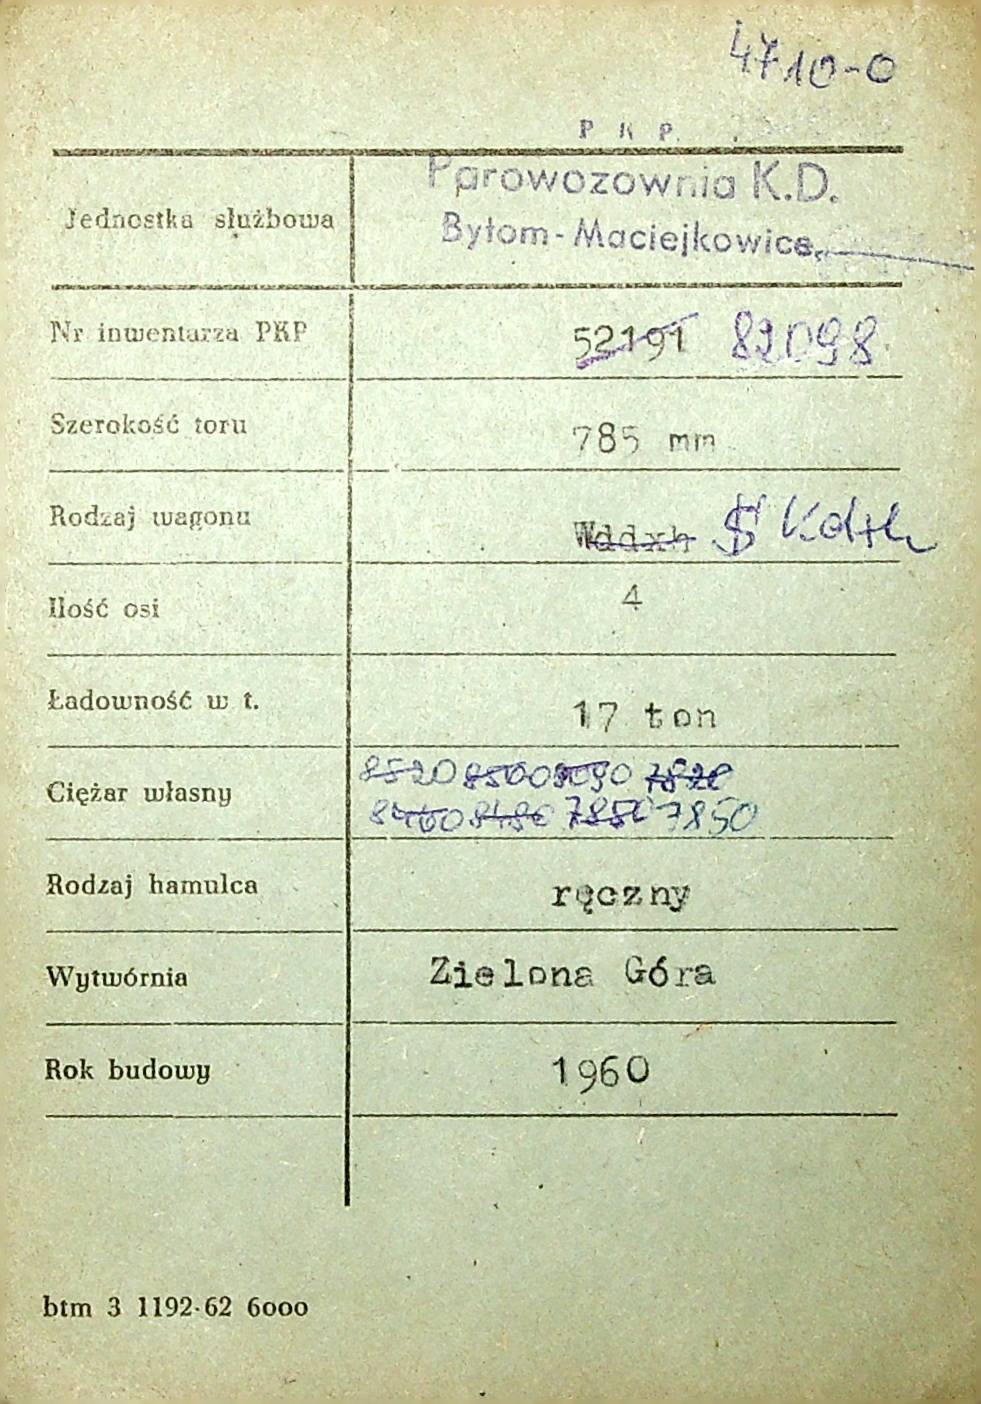 4710-0
P K P.
Parowozownia K.D.
Jednostka służbowa
Bytom-Maciejkowice
Nr inwentarza PKP 52191 82098
Szerokość toru 785 mm
Rodzaj wagonu Wddxh
Ilość osi 4
Ładowność w t. 17 ton
8520 8500 8090 7820
Ciężar własny
8460 8480 7880 7850
Rodzaj hamulca ręczny
Wytwórnia Zielona Góra
Rok budowy 1960
btm 3 1192-62 6000